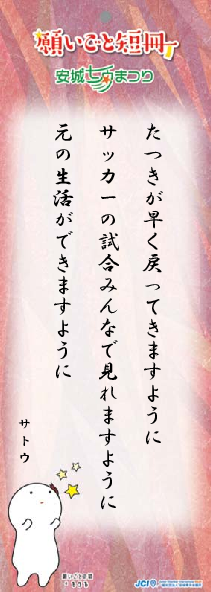 願いごと短冊
安城七夕まつり
たつきが早く戻ってきますように
サッカーの試合みんなで見れますように
元の生活ができますように
サトウ
願いごと短冊
JCI